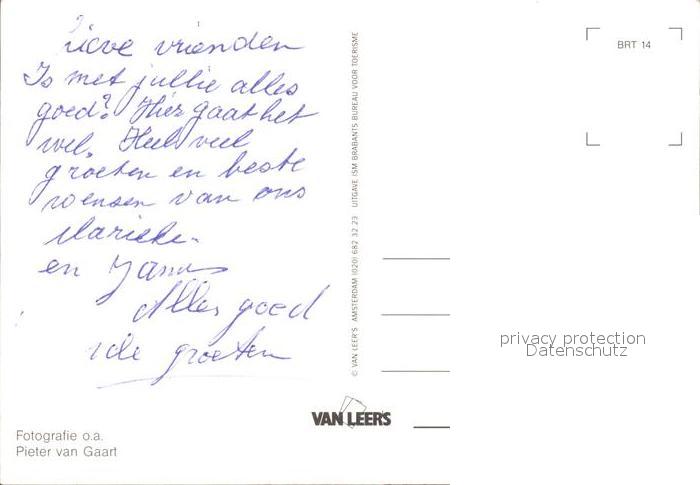 Lieve vrienden
Is met jullie alles
goed? Hier gaat het
wel. Heel veel
groeten en beste
wensen van ons
Marieke
en Janus
Alles goed
de groeten
© VAN LEER'S AMSTERDAM (020) 682 32 23 UITGAVE ISM BRABANTS BUREAU VOOR TOERISME
BRT 14
privacy protection
Datenschutz
VAN LEER'S
Fotografie o.a.
Pieter van Gaart